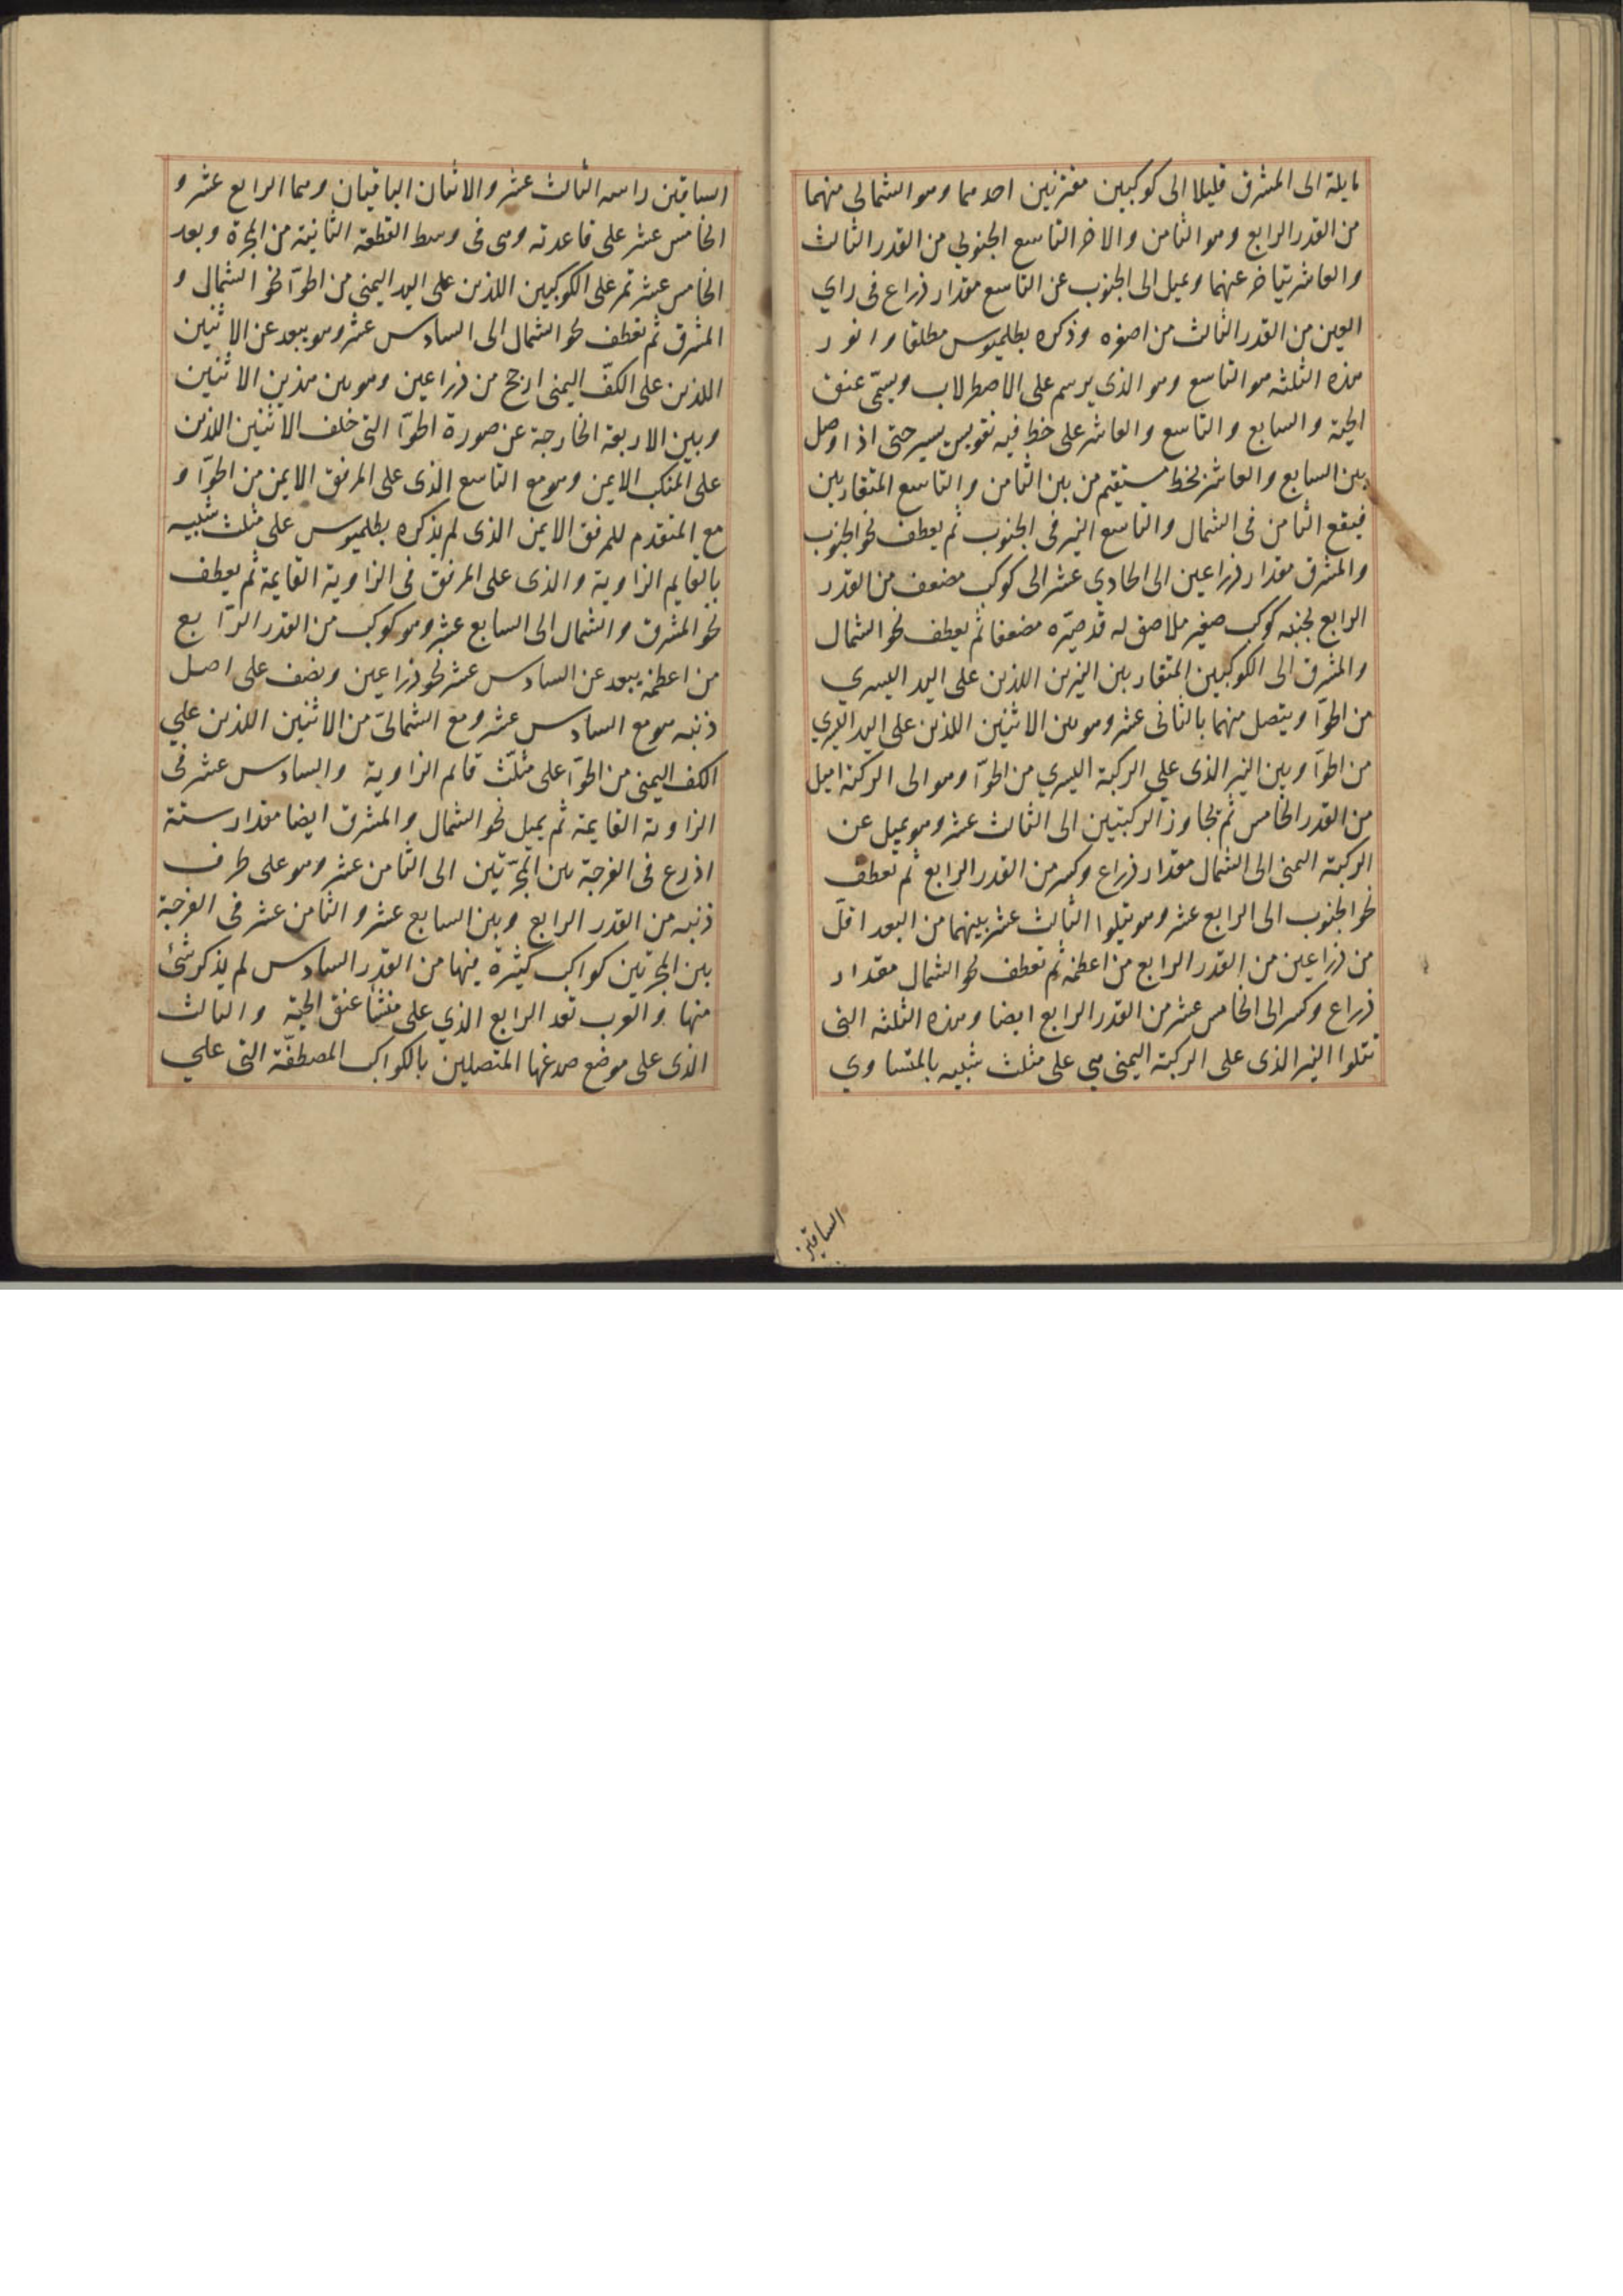 مايلة الى المشرق قليلا الى كوكبين مقترنين احدهما وهو الشمالي منهما
من القدر الرابع وهو الثامن والاخر التاسع الجنوبي من القدر الثالث
والعاشر يتاخر عنهما ويميل الى الجنوب عن التاسع مقدار ذراع في راي
العين من القدر الثالث من اصغره وذكره بطلميوس مطلقا وانور
هذه الثلثه هو التاسع وهو الذي يرسم على الاصطرلاب ويسمّى عنق
الحية والسابع والتاسع والعاشر على خط فيه تقويس يسير حتى اذا وصل
بين السابع والعاشر بخط مستقيم من بين الثامن والتاسع المتقاربين
فيقع الثامن في الشمال والتاسع النير في الجنوب ثم يعطف نحو الجنوب
والمشرق مقدار ذراعين الى الحادي عشر الى كوكب مضعف من القدر
الرابع بجنبه كوكب صغير ملاصق له قد صيّره مضعفا ثم يعطف نحو الشمال
والمشرق الى الكوكبين المتقاربين النيرين اللذين على اليد اليسري
من الحوّا ويتصل منهما بالثاني عشر وهو بين الاثنين اللذين على اليد اليسري
من الحوّا وبين النير الذي علي الركبة اليسري من الحوّا وهو الى الركبة اميل
من القدر الخامس ثم تجاوز الركبتين الى الثالث عشر وهو يميل عن
الركبة اليمنى الى الشمال مقدار ذراع وكسر من القدر الرابع ثم تعطف
نحو الجنوب الى الرابع عشر وهو يتلوا الثالث عشر بينهما من البعد اقلّ
من ذراعين من القدر الرابع من اعظمه ثم تعطف نحو الشمال مقدار
ذراع وكسر الى الخامس عشر من القدر الرابع ايضا وهذه الثلثه التى
تتلوا النير الذى على الركبة اليمنى هي على مثلث شبيه بالمتساوي
الساقين
الساقين راسه الثالث عشر والاثنان الباقيان وهما الرابع عشر و
الخامس عشر على قاعدته وهى فى وسط القطعة الثانية من المجرة وبعد
الخامس عشر تمر على الكوكبين اللذين على اليد اليمنى من الحوّا نحو الشمال و
المشرق ثم تعطف نحو الشمال الى السادس عشر وهو يبعد عن الاثنين
اللذين على الكفّ اليمنى ارجح من ذراعين وهو بين هذين الاثنين
وبين الاربعة الخارجة عن صورة الحوّا التى خلف الاثنين اللذين
على المنكب الايمن وهو مع التاسع الذى على المرفق الايمن من الحوّا و
مع المتقدم للمرفق الايمن الذى لم يذكره بطلميوس على مثلث شبيه
بالقايم الزاوية والذى على المرفق فى الزاوية القايمة ثم يعطف
نحو المشرق والشمال الى السابع عشر وهو كوكب من القدر الرّابع
من اعظمه يبعد عن السادس عشر نحو ذراعين ونصف على اصل
ذنبه هو مع السادس عشر ومع الشمالىّ من الاثنين اللذين علي
الكف اليمنى من الحوّا على مثلّث قائم الزاوية والسادس عشر فى
الزاوية القايمة ثم يميل نحو الشمال والمشرق ايضا مقدار ستة
اذرع فى الفرجة بين المجرّتين الى الثامن عشر وهو على طرف
ذنبه من القدر الرابع وبين السابع عشر والثامن عشر فى الفرجة
بين المجرتين كواكب كثيرة منها من القدر السادس لم يذكر شئ
منها والعرب تعد الرابع الذي على منشأ عنق الحية والثالث
الذى على موضع صدغها المتصلين بالكواكب المصطفّة التى علي